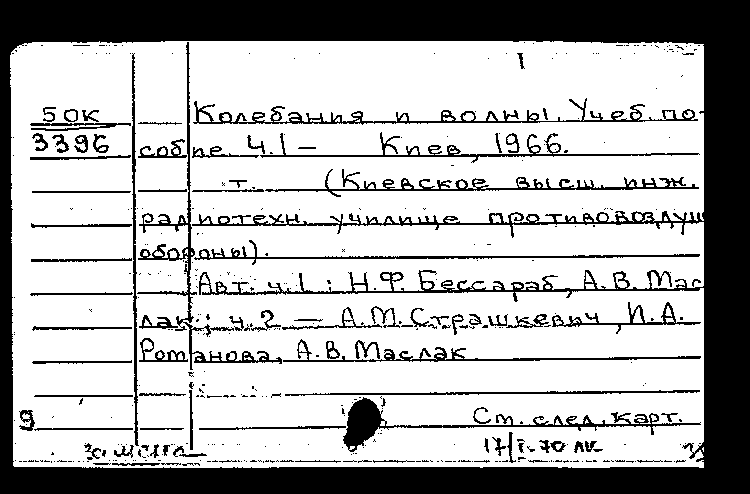 I
50К
3396
Колебания и волны. Учеб. по-
собие. Ч.1 — Киев, 1966.
т. (Киевское высш. инж.
радиотехн. училище противовоздуш
обороны).
Авт. ч.1: Н.Ф. Бессараб, А.В. Мас
лак; ч.2 — А.М. Страшкевич, И.А.
Романова, А.В. Маслак
9 См. след. карт.
17/I-70